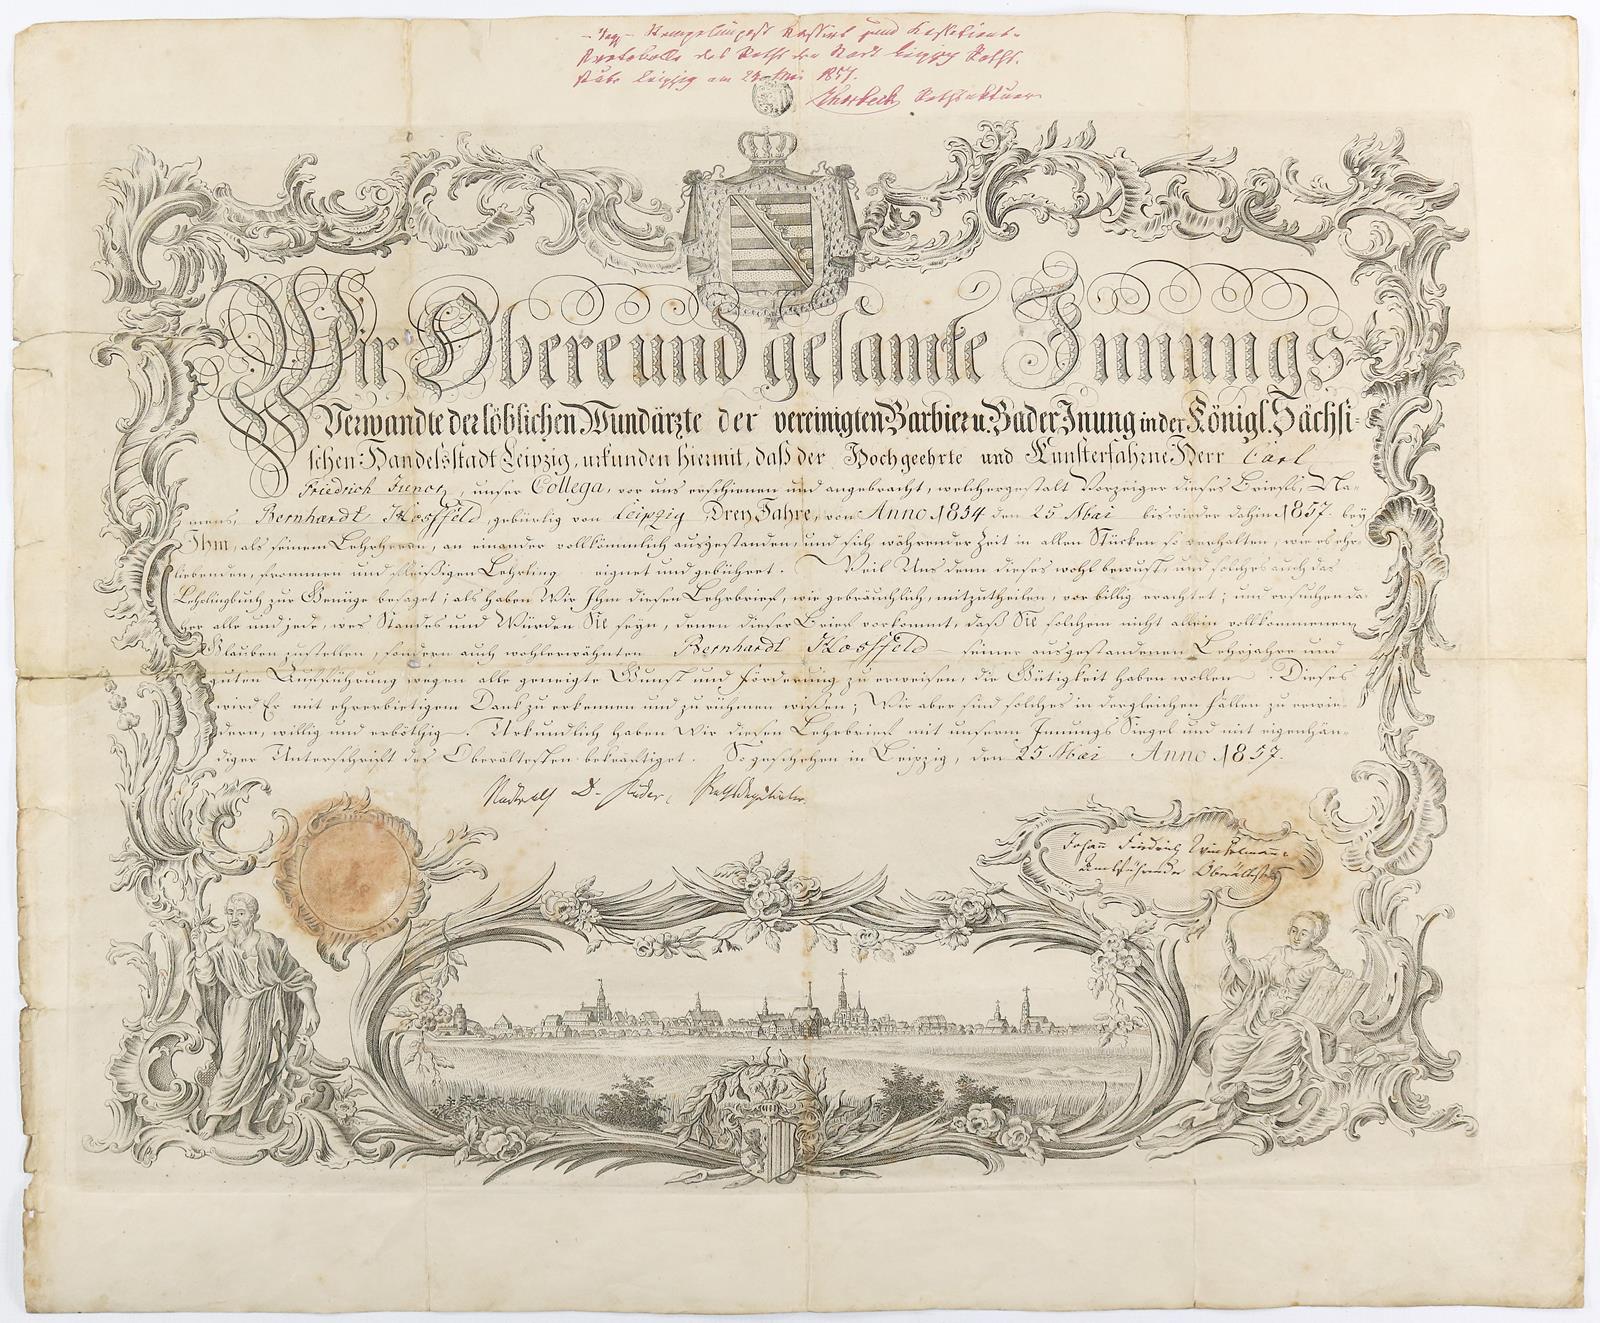 Stempelimpost cassirt und
Protokolle des Raths der Stadt Leipzig Raths-
stube Leipzig am 25 Mai 1857.
Wir Obere und gesamte Innungs
Verwandte der löblichen Wundärzte der vereinigten Barbier u. Bader Inung in der Königl. Sächsi-
schen Handelsstadt Leipzig, urkunden hiermit, daß der Hochgeehrte und Kunsterfahrne Herr Carl
Friedrich, unser Collega, vor uns erschienen und angebracht, welchergestalt Vorzeiger dieses Briefs, Na-
mens, Bernhardt Hosffeld, gebürtig von Leipzig Drey Jahre, von Anno 1854 den 25 Mai bis wieder dahin 1857. bey
Ihm, als seinem Lehrherrn, an einander vollkömmlich ausgestanden, und sich währender Zeit in allen Stücken so verhalten, wie es ehr-
liebenden, frommen und fleißigen Lehrling eignet und gebühret. Weil Uns denn dieses wohl bewust, und solches auch das
Lehrlingbuch zur Genüge besaget; als haben Wir Ihm diesen Lehrbrief, wie gebräuchlich, mitzutheilen, vor billig erachtet; und ersuchen da-
her alle und jede, wes Standes und Würden Sie seyn, denen dieser Brief vorkommt, daß Sie solchem nicht allein vollkommenen
Glauben zustellen, sondern auch wohlerwähnten Bernhardt Hosffeld seiner ausgestandenen Lehrjahre und
guten Aufführung wegen alle geneigte Gunst und Förderung zu erweisen, die Gütigkeit haben wollen. Dieses
wird Er mit ehrerbietigem Dank zu erkennen und zu rühmen wissen; Wir aber sind solches in dergleichen Fällen zu erwie-
dern, willig und erböthig. Urkundlich haben Wir diesen Lehrbrief mit unserm Innungs Siegel und mit eigenhän-
diger Unterschrift des Oberältesten bekräftiget. So geschehen in Leipzig, den 25 Mai Anno 1857.
Johann Friedrich Winkelmann
Amtsführender Oberältester